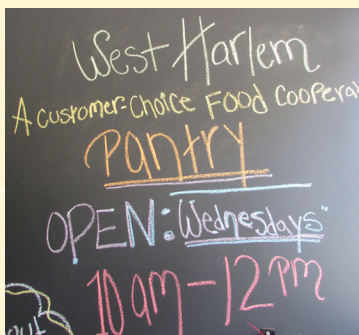 West Harlem
A customer-choice Food Coopera
Pantry
OPEN: Wednesdays
10 am - 12 pm
out